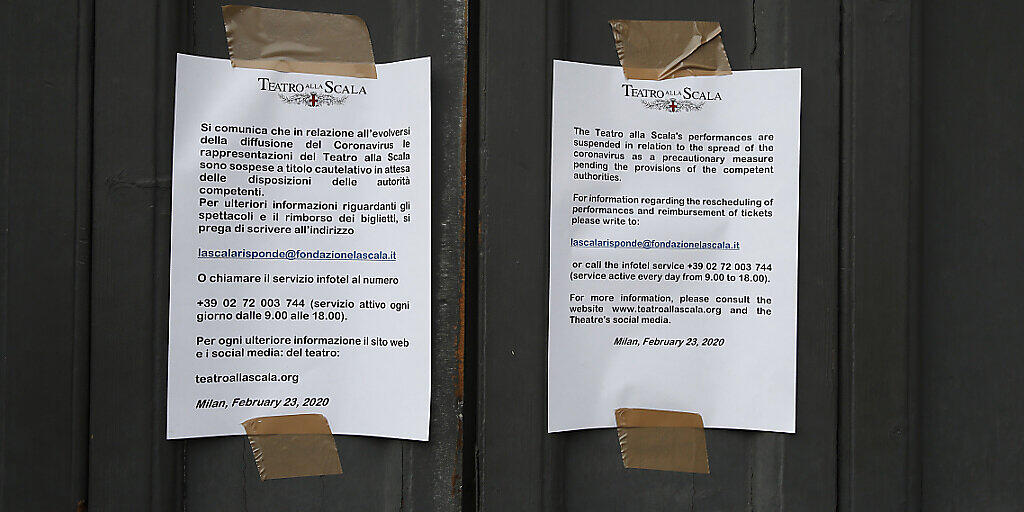 TEATRO ALLA SCALA
Si comunica che in relazione all'evolversi
della diffusione del Coronavirus le
rappresentazioni del Teatro alla Scala
sono sospese a titolo cautelativo in attesa
delle disposizioni delle autorità
competenti.
Per ulteriori informazioni riguardanti gli
spettacoli e il rimborso dei biglietti, si
prega di scrivere all'indirizzo
lascalarisponde@fondazionelascala.it
O chiamare il servizio infotel al numero
+39 02 72 003 744 (servizio attivo ogni
giorno dalle 9.00 alle 18.00).
Per ogni ulteriore informazione il sito web
e i social media: del teatro:
teatroallascala.org
Milan, February 23, 2020
TEATRO ALLA SCALA
The Teatro alla Scala's performances are
suspended in relation to the spread of the
coronavirus as a precautionary measure
pending the provisions of the competent
authorities.
For information regarding the rescheduling of
performances and reimbursement of tickets
please write to:
lascalarisponde@fondazionelascala.it
or call the infotel service +39 02 72 003 744
(service active every day from 9.00 to 18.00).
For more information, please consult the
website www.teatroallascala.org and the
Theatre's social media.
Milan, February 23, 2020